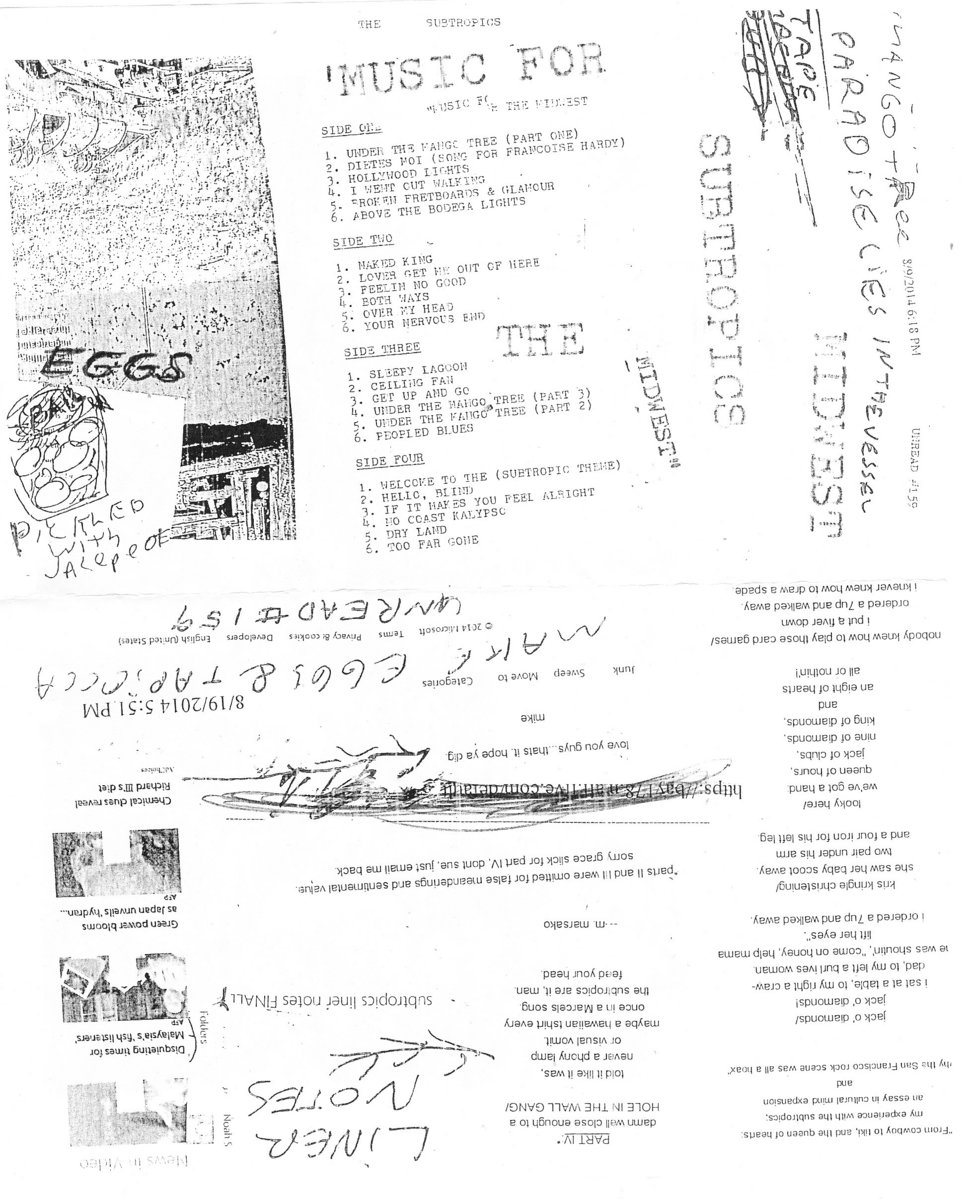 THE SUBTROPICS
'MUSIC FOR
MUSIC FOR THE MIDWEST
SIDE ONE
1. UNDER THE MANGO TREE (PART ONE)
2. DIETES MOI (SONG FOR FRANCOISE HARDY)
3. HOLLYWOOD LIGHTS
4. I WENT OUT WALKING
5. BROKEN FRETBOARDS & GLAMOUR
6. ABOVE THE BODEGA LIGHTS
SIDE TWO
1. NAKED KING
2. LOVER GET ME OUT OF HERE
3. FEELIN NO GOOD
4. BOTH WAYS
5. OVER MY HEAD
6. YOUR NERVOUS END
THE
SIDE THREE
1. SLEEPY LAGOON
2. CEILING FAN
3. GET UP AND GO
4. UNDER THE MANGO TREE (PART 3)
5. UNDER THE MANGO TREE (PART 2)
6. PEOPLED BLUES
SIDE FOUR
1. WELCOME TO THE (SUBTROPIC THEME)
2. HELLO, BLIND
3. IF IT MAKES YOU FEEL ALRIGHT
4. NO COAST KALYPSO
5. DRY LAND
6. TOO FAR GONE
MIDWEST"
SUBTROPICS
MIDWEST
TAPE
PARADISE LIES IN THE VESSEL
MANGO TREE
8/9/2014 6:18 PM
UNREAD #159
EGGS
PICKLED
WITH
"From cowboy to tiki, and the queen of hearts:
my experience with the subtropics;
an essay in cultural mind expansion
and
why the San Francisco rock scene was all a hoax"
jack o' diamonds/
jack o' diamonds!
i sat at a table, to my right a craw-
dad, to my left a burl ives woman.
he was shoutin', "come on honey, help mama
lift her eyes".
i ordered a 7up and walked away.
kris kringle christening/
she saw her baby scoot away.
two pair under his arm
and a four iron for his left leg.
looky here/
we've got a hand
queen of hours,
jack of clubs,
nine of diamonds,
king of diamonds,
and
an eight of hearts
all or nothin'!
nobody knew how to play those card games/
i put a fiver down
ordered a 7up and walked away.
i knever knew how to draw a spade
"PART IV:"
damn well close enough to a
HOLE IN THE WALL GANG/
told it like it was,
never a phony lamp
or visual vomit.
maybe a hawaiian tshirt every
once in a Marcels song.
the subtropics are it, man.
feed your head.
---m. marsako
"parts II and III were omitted for false meanderings and sentimental value.
sorry grace slick for part IV, dont sue, just email me back.
https://bay178.mail.live.com/default
love you guys...thats it. hope ya dig.
mike
Junk Sweep Move to Categories
© 2014 Microsoft Terms Privacy & cookies Developers English (United States)
LINER
NOTES
subtropics liner notes FINALLY
Folders
Noah S
News in Video
Disquieting times for
Malaysia's 'fish listeners'
AFP
Green power blooms
as Japan unveils 'hydran...
AFP
Chemical clues reveal
Richard III's diet
AdChoices
8/19/2014 5:51 PM
MAKE EGGS & TAPIOCCA
UNREAD #159